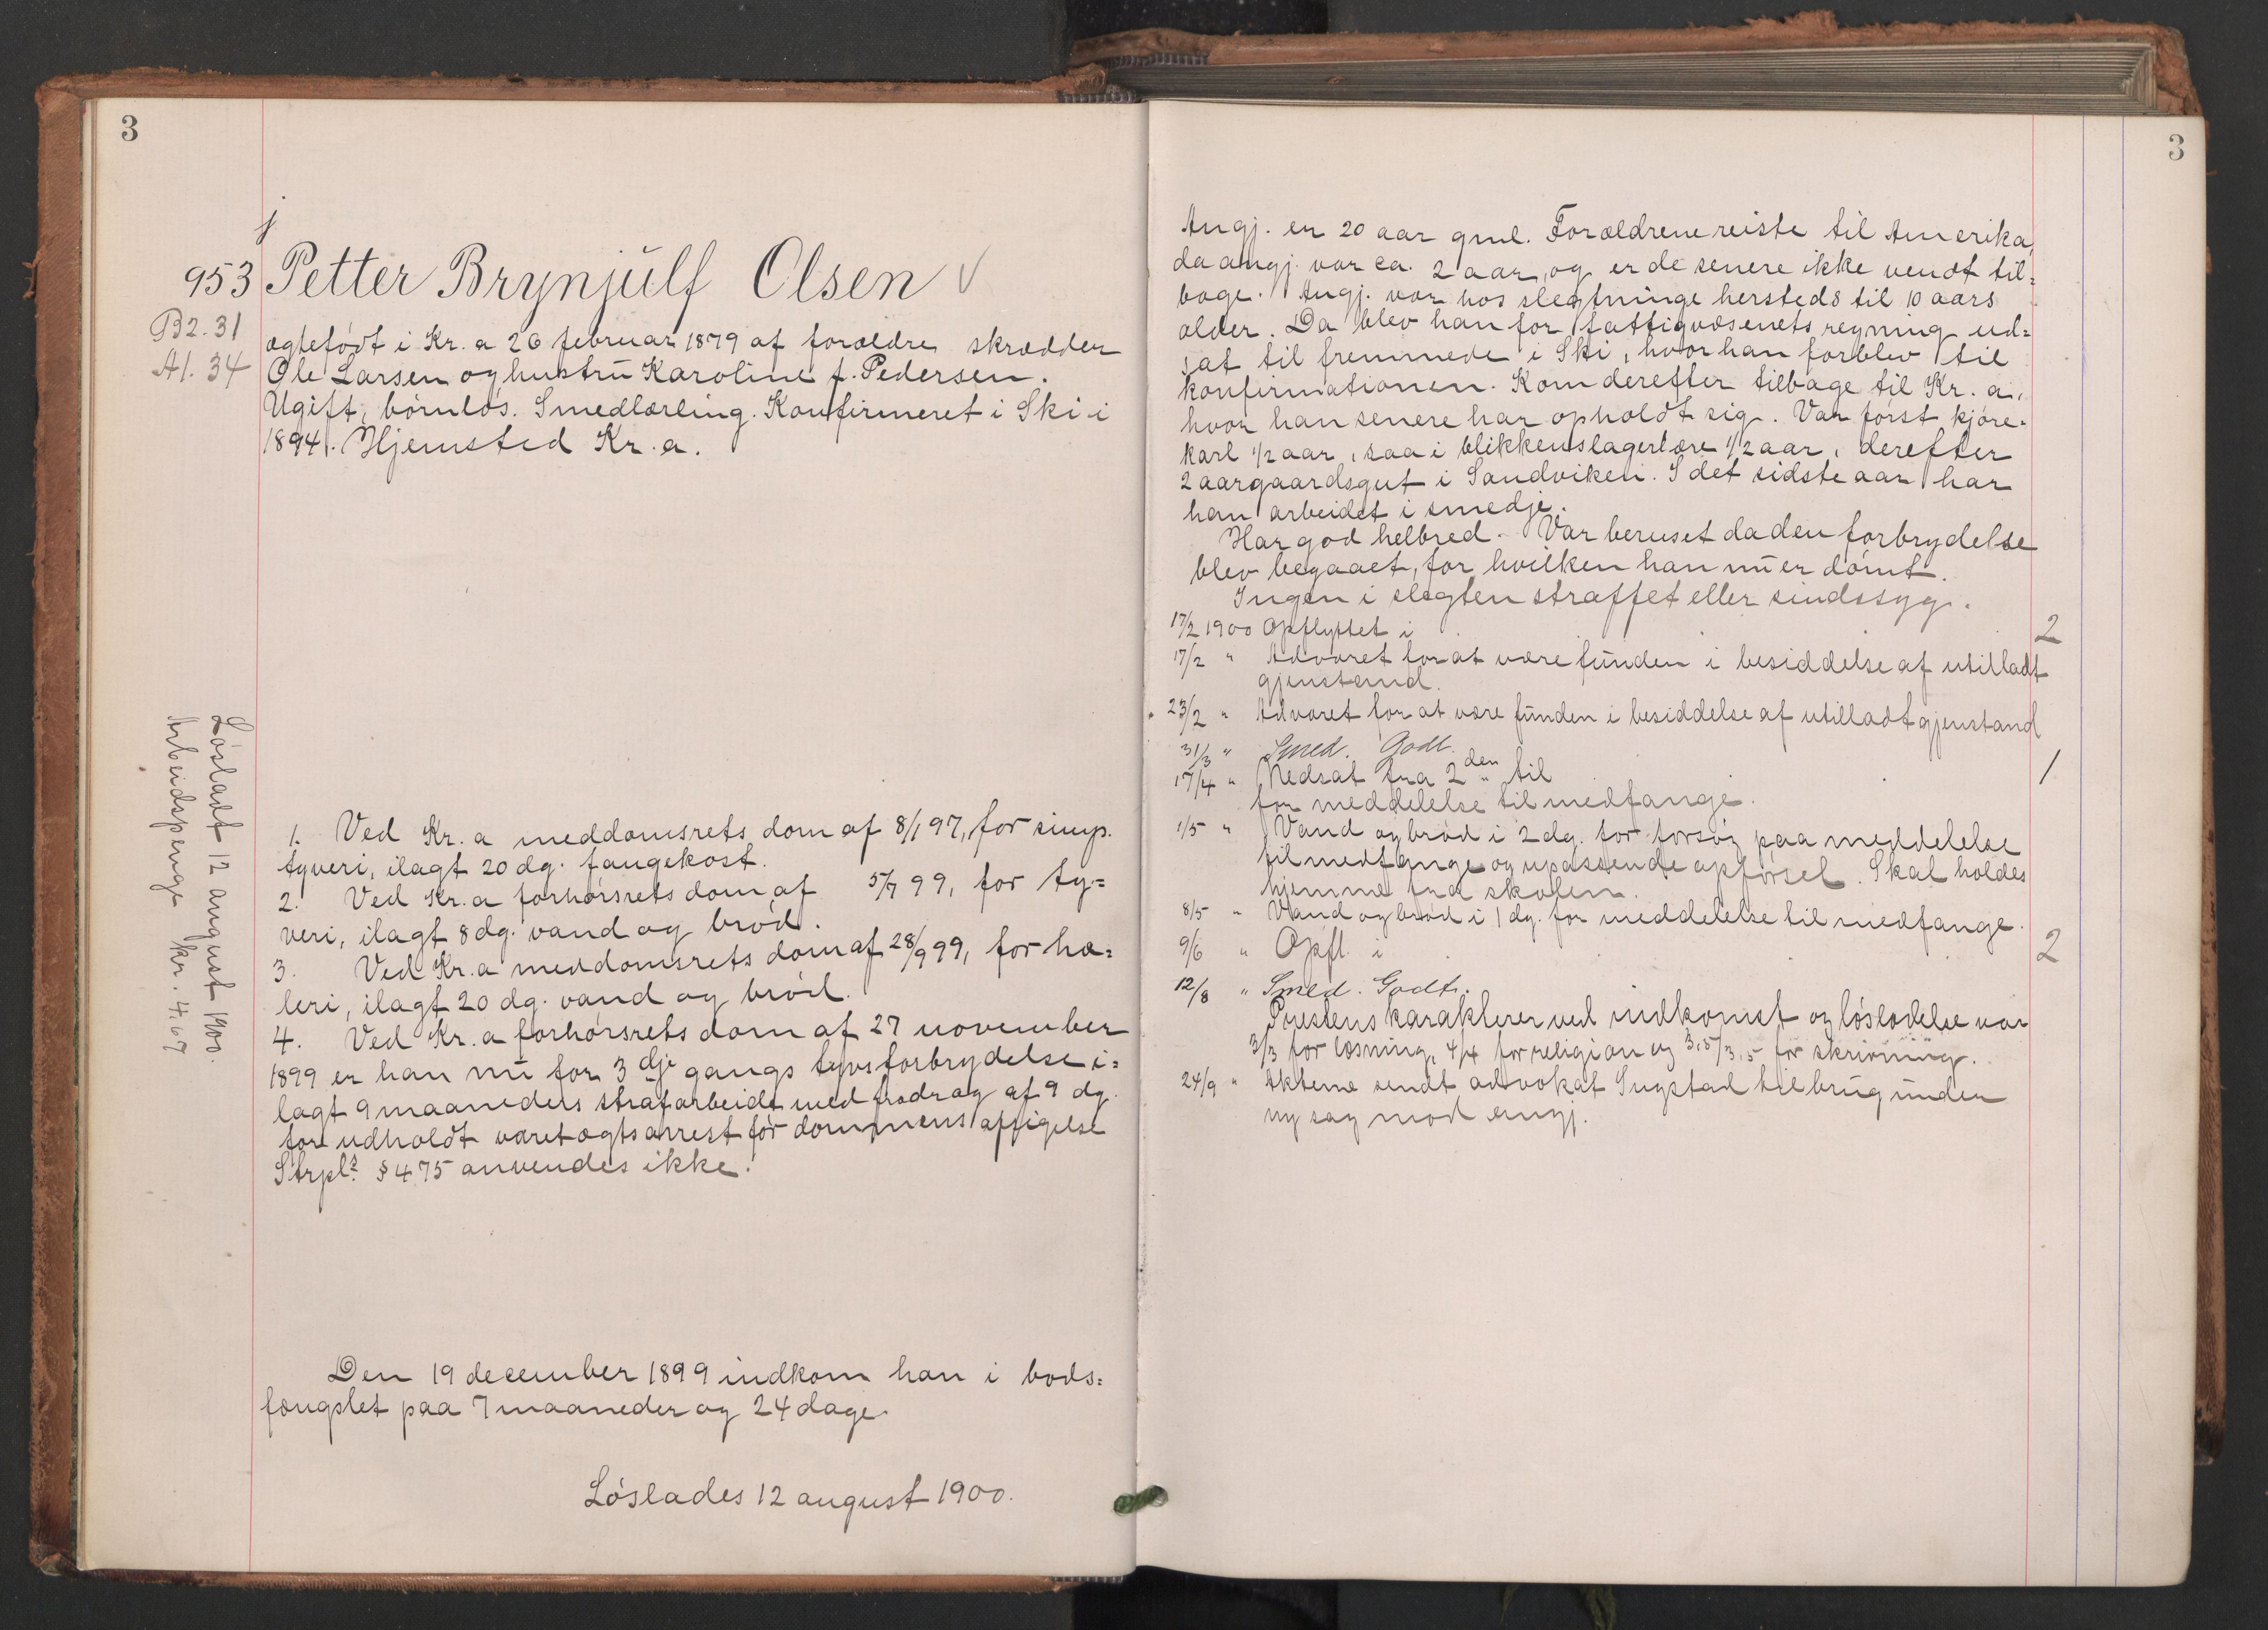 3
953 Petter Brynjulf Olsen
B2. 31
A1. 34
ægtefødt i Kr.a 26 februar 1879 af forældre skrædder
Ole Larsen og hustru Karoline f. Pedersen.
Ugift, børnløs. Smedlærling. Konfirmeret i Ski i
1894. Hjemsted Kr.a.
Løsladt 12 august 1900.
Arbeidspenge kr. 4,67
1. Ved Kr.a meddomsrets dom af 8/1 97, for simp.
tyveri, ilagt 20 dg. fangekost.
2. Ved Kr.a forhørsrets dom af 5/7 99, for ty=
veri, ilagt 8 dg. vand og brød.
3. Ved Kr.a meddomsrets dom af 28/9 99, for hæ=
leri, ilagt 20 dg. vand og brød.
4. Ved Kr.a forhørsrets dom af 27 november
1899 er han nu for 3dje gangs tyvsforbrydelse i=
lagt 9 maaneders strafarbeide med fradrag af 9 dg.
for udholdt varetægtsarrest før dommens afsigelse
Strpl. § 475 anvendes ikke.
Den 19 december 1899 indkom han i bods=
fængslet paa 7 maaneder og 24 dage.
Løslades 12 august 1900.
3
Angj. er 20 aar gml. Forældrene reiste til Amerika,
da angj. var ca. 2 aar, og er de senere ikke vendt til=
bage. Angj. var hos slegtninge hersteds til 10 aars
alder. Da blev han for fattigvæsenets regning ud=
sat til fremmede i Ski, hvor han forblev til
konfirmationen. Kom derefter tilbage til Kr.a,
hvor han senere har opholdt sig. Var først kjøre=
karl 1/2 aar, saa i blikkenslagerlære 1/2 aar, derefter
2 aar gaardsgut i Sandviken. I det sidste aar har
han arbeidet i smedje.
Har god helbred. Var beruset da den forbrydelse
blev begaaet, for hvilken han nu er dømt.
Ingen i slegten straffet eller sindssyg.
17/2 1900 Opflyttet i 2
17/2 " Advaret for at være funden i besiddelse af utilladt
gjenstand.
23/2 " Advaret for at være funden i besiddelse af utilladt gjenstand
31/3 " Smed. Godt.
17/4 " Nedsat fra 2den til 1
for meddelelse til medfange.
1/5 " Vand og brød i 2 dg. for forsøg paa meddelelse
til medfange og upassende opførsel. Skal holdes
hjemme fra skolen.
8/5 " Vand og brød i 1 dg. for meddelelse til medfange.
9/6 " Opfl. i 2
12/8 " Smed. Godt.
Prestens karakterer ved indkomst og løsladelse var
3/3 for læsning, 4/4 for religion og 3,5/3,5 for skrivning.
24/9 " Akterne sendt advokat Sugstad til brug under
ny sag mod angj.